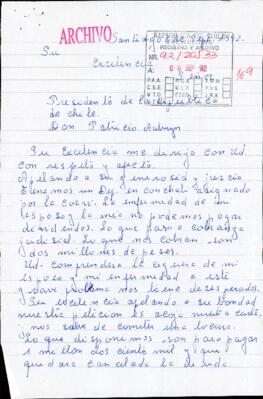 ARCHIVO
Santiago
1992.
REGISTRO Y ARCHIVO
NR. 92/20533
Su
Excelencia
A: 08 SEP 92
P.A.A.
C.B.E.
M.T.O.
169
Presidente de la República
de Chile.
Don Patricio Aylwyn
Su Excelencia me dirijo con Ud.
con respeto y afecto.
Apelando a su generosidad y justicia
tenemos un Dep. en conchalí asignado
por la Corvi. La enfermedad de mi
esposa y la mia no podemos pagar
dividendos. Lo que paso a cobranza
judicial. Lo que nos cobran son
dos millones de pesos.
Ud. comprendera la ceguera de mi
esposa y mi enfermedad a este
grave problema nos tiene desesperados.
Su excelencia apelando a su bondad
nuestra peticion es acoja nuestra carta,
nos salve de cometer una locura.
Lo que disponemos son para pagar
1 millon dos cientos mil y que
quedara cancelada la deuda